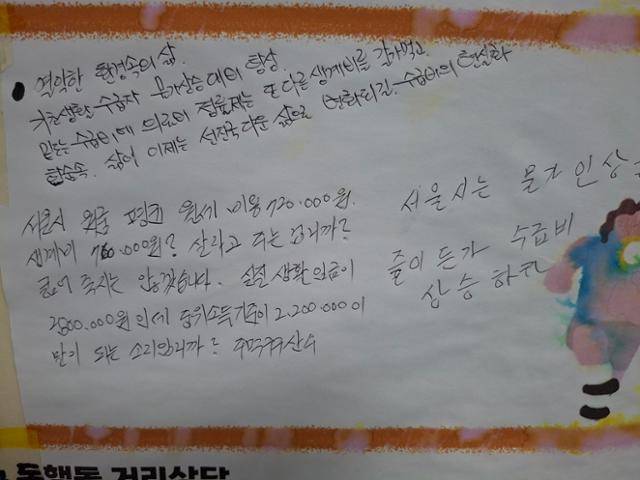 열악한 환경속의 삶.
기초생활 수급자 물가상승 대비 항상
받는 수급비에 의료비 정률제는 또 다른 생계비를 갉아먹고.
합숙속. 삶이 이제는 선진국 다운 삶으로 변화되길. 수급비의 현실화
서울시 원룸 평균 월세 비용 720.000원.
생계비 760.000원? 살라고 주는 겁니까?
굶어 죽지는 않겠습니다. 실질 생활 임금이
2500.000원 인데 중위소득 기준이 2.200.000이
말이 되는 소리입니까? 주먹구구 산수
서울시는 물가 인상을
줄이든가 수급비
상승 하라
동행동 거리상담